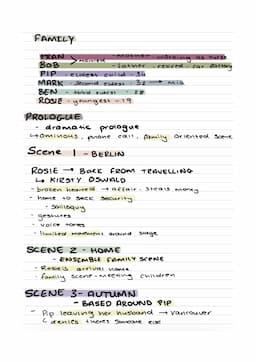 FAMILY
FRAN married - mother - working as nurse
BOB - father - retired car factory
PIP - eldest child - 34
MARK - second eldest - 32 → Mia
BEN - third eldest - 28
ROSIE - youngest - 19
PROLOGUE
- dramatic prologue
↳ ominous, phone call, family oriented scene
Scene 1 - BERLIN
ROSIE → BACK FROM TRAVELLING
↳ KIRSTY OSWALD
- broken hearted → affair, steals money
- home to seek security
- soliloquy
- gestures
- voice tones
- limited movement around stage
SCENE 2 - HOME
- ENSEMBLE FAMILY SCENE
- Rosie's arrival home
- family scene - meeting children
SCENE 3 - AUTUMN
- BASED AROUND PIP
- Pip leaving her husband → Vancouver
↳ denies there's someone else